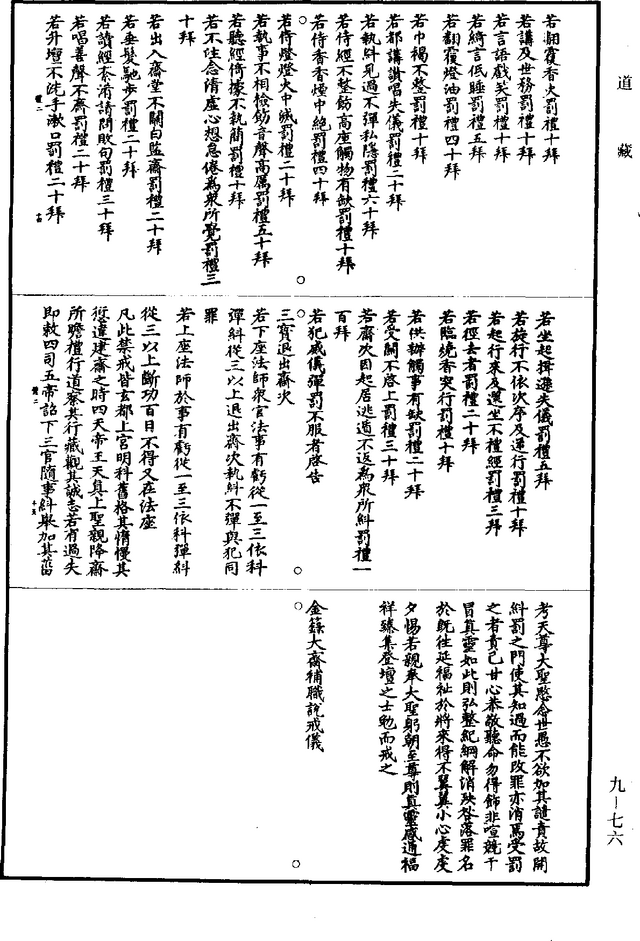 道藏
若翻覆香火罰禮十拜
若講及世務罰禮十拜
若言語戲笑罰禮十拜
若綺言低睡罰禮五拜
若翻覆燈油罰禮四十拜
若巾褐不整罰禮十拜
若都講讚唱失儀罰禮二十拜
若執糾見過不彈私隱罰禮六十拜
若侍經不整飭高座觸物有缺罰禮十拜
若侍香香煙中絕罰禮四十拜
若侍燈燈火中滅罰禮二十拜
若執事不相檢飭音聲高厲罰禮五十拜
若聽經倚據不執簡罰禮十拜
若不注念清虛心想怠倦為眾所覺罰禮三
十拜
若出入齋堂不關白監齋罰禮二十拜
若垂髮馳步罰禮二十拜
若讀經忝淆請問敗句罰禮三十拜
若唱善聲不齊罰禮二十拜
若升壇不洗手漱口罰禮二十拜
若坐起揖遜失儀罰禮五拜
若旋行不依次序及逆行罰禮十拜
若起行來及還坐不禮經罰禮三拜
若徑去者罰禮二十拜
若臨繞香突行罰禮十拜
若供辦觸事有缺罰禮二十拜
若受關不啓上罰禮三十拜
若齋次因起居逃遁不返為眾所糾罰禮一
百拜
若犯威儀彈罰不服者啓告
三寶退出齋次
若下座法師眾官法事有虧從一至三依科
彈糾從三以上退出齋次執糾不彈與犯同
罪
若上座法師於事有虧從一至三依科彈糾
從三以上斷功百日不得又在法座
凡此禁戒皆玄都上宮明科舊格其惰慢其
愆違建齋之時四天帝王天真上聖親降齋
所瞻禮行道察其行藏觀其誠志若有過失
即敕四司五帝詔下三官隨事糾舉加其笛
考天尊大聖愍念世愚不欲加其譴責故開
糾罰之門使其知過而能改罪亦消焉受罰
之者責己甘心恭敬聽命勿得飾非喧競干
冒真靈如此則弘整紀綱解消殃咎落罪名
於既往延福祉於將來得不翼翼小心虔虔
夕惕若親奉大聖躬朝至尊則真靈感通福
祥臻集登壇之士勉而戒之
金籙大齋補職說戒儀
九-七六